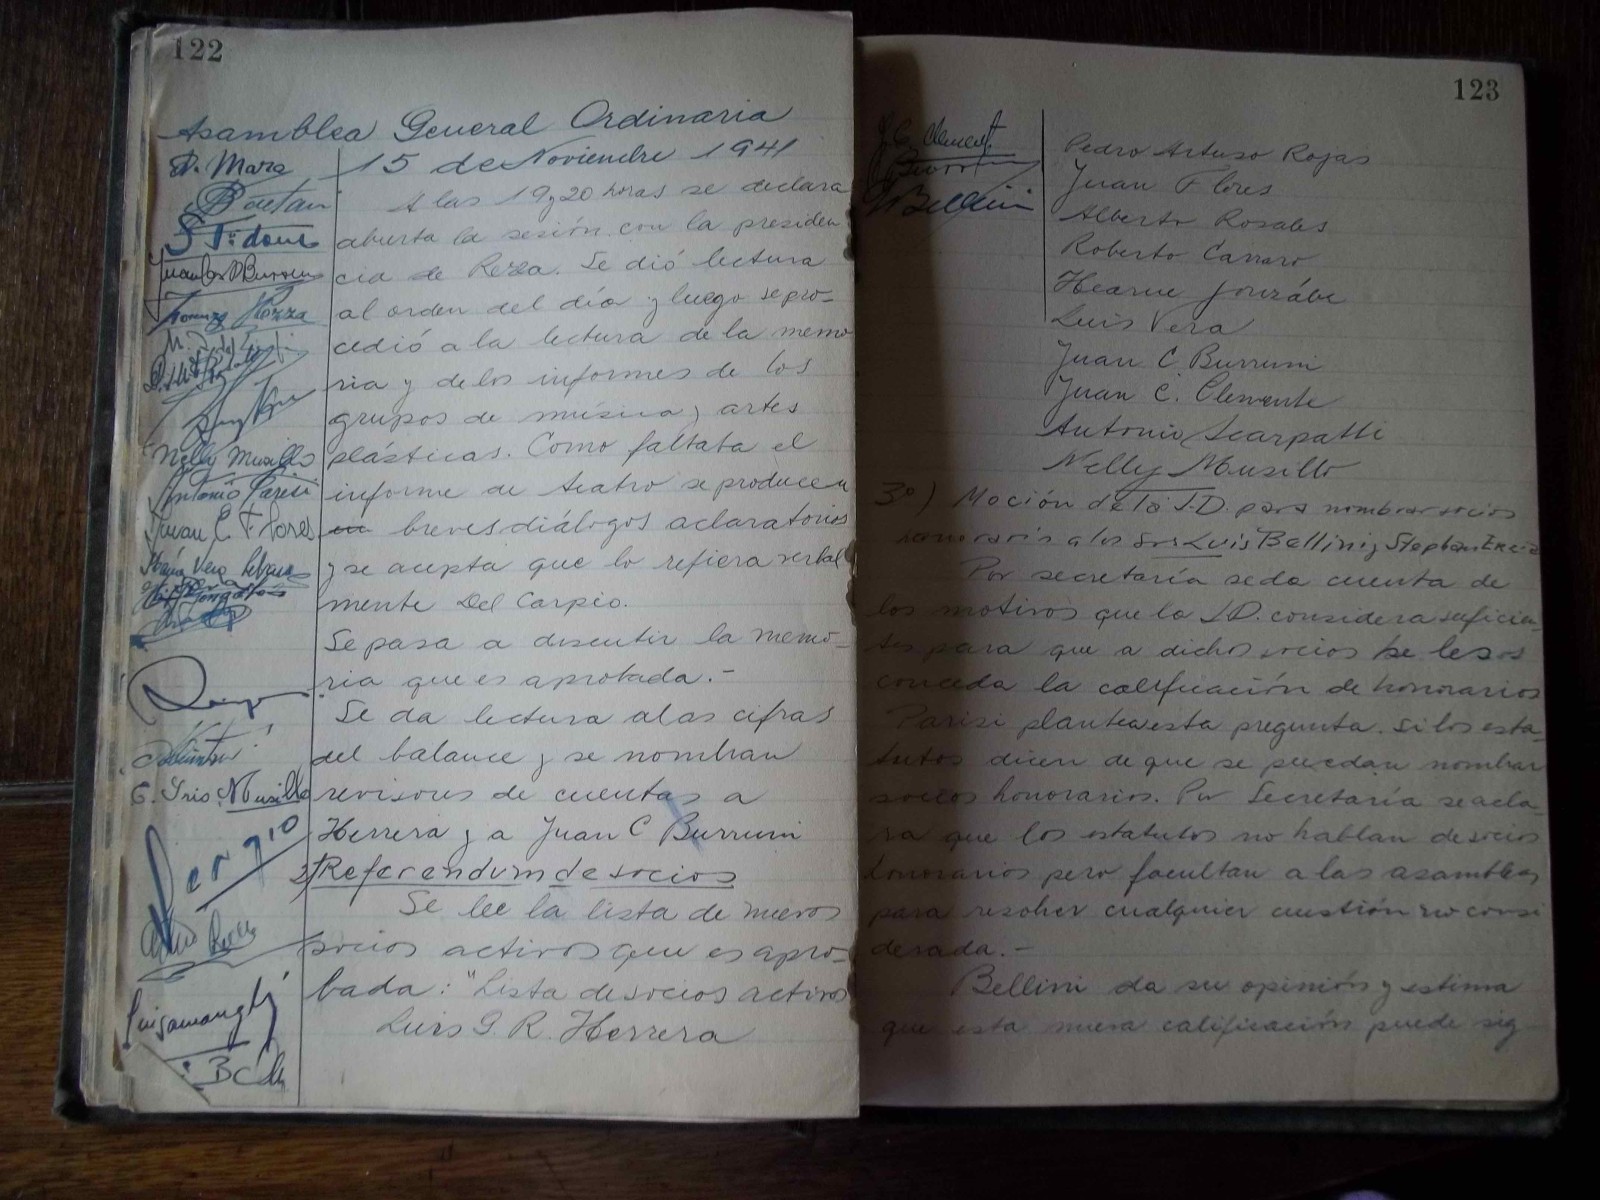 122
Asamblea General Ordinaria
15 de Noviembre 1941
A las 19,20 horas se declara
abierta la sesión con la presiden
cia de Rezza. Se dió lectura
al orden del día y luego se pro-
cedió a la lectura de la memo
ria y de los informes de los
grupos de música y artes
plásticas. Como faltata el
informe de teatro se producen
en breves diálogos aclaratorios
y se acepta que lo refiera verbal
mente Del Carpio.
Se pasa a discutir la memo-
ria que es aprobada.-
Se da lectura a las cifras
del balance y se nombran
revisores de cuentas a
Herrera y a Juan C Burruni
2) Referendum de socios
Se lee la lista de nuevos
socios activos que es apro-
bada: "Lista de socios activos
Luis G. R. Herrera
Boetan
Nelly Musillo
Antonio Parisi
Juan C. Flores
G. Iris Musillo
123
J. C. Clement.
Bellini
Pedro Arturo Rojas
Juan Flores
Alberto Rosales
Roberto Carraro
Luis Vera
Juan C. Burruni
Juan C. Clemente
Antonio Scarpatti
Nelly Musillo
3º) Moción de la J.D. para nombrar socios
honorarios a los Srs Luis Bellini y Stephan
Por secretaría se da cuenta de
los motivos que la J.D. considera suficien-
tes para que a dichos socios se les
conceda la calificación de honorarios
Parisi plantea esta pregunta. Si los esta-
tutos dicen de que se puedan nombrar
socios honorarios. Por Secretaría se acla
ra que los estatutos no hablan de socios
honorarios pero facultan a las asambleas
para resolver cualquier cuestión no consi
derada.-
Bellini da su opinión y estima
que esta nueva calificación puede sig